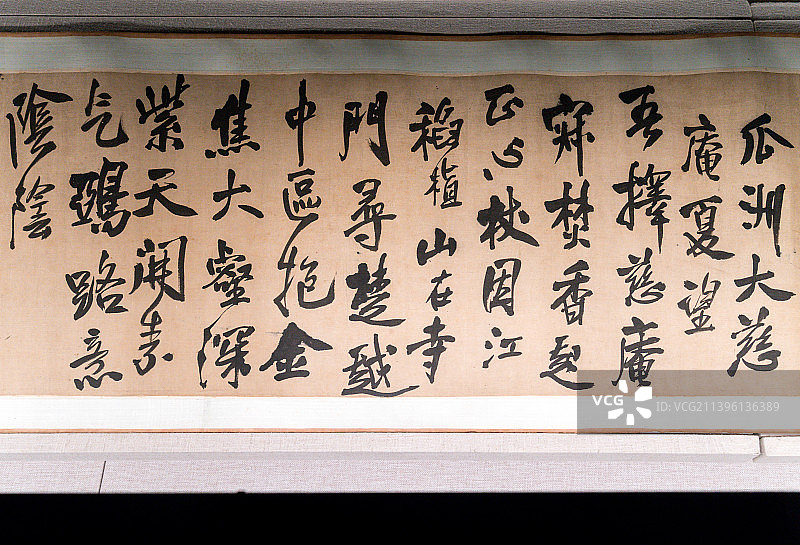 瓜洲大慈
庵夏望
吾擇慈庵
寐焚香起
正心杖固江
稻植山在寺
門尋楚越
中區抱金
焦大壑深
紫天開素
气鴻路意
陰陰
VCG
VCG211396136389